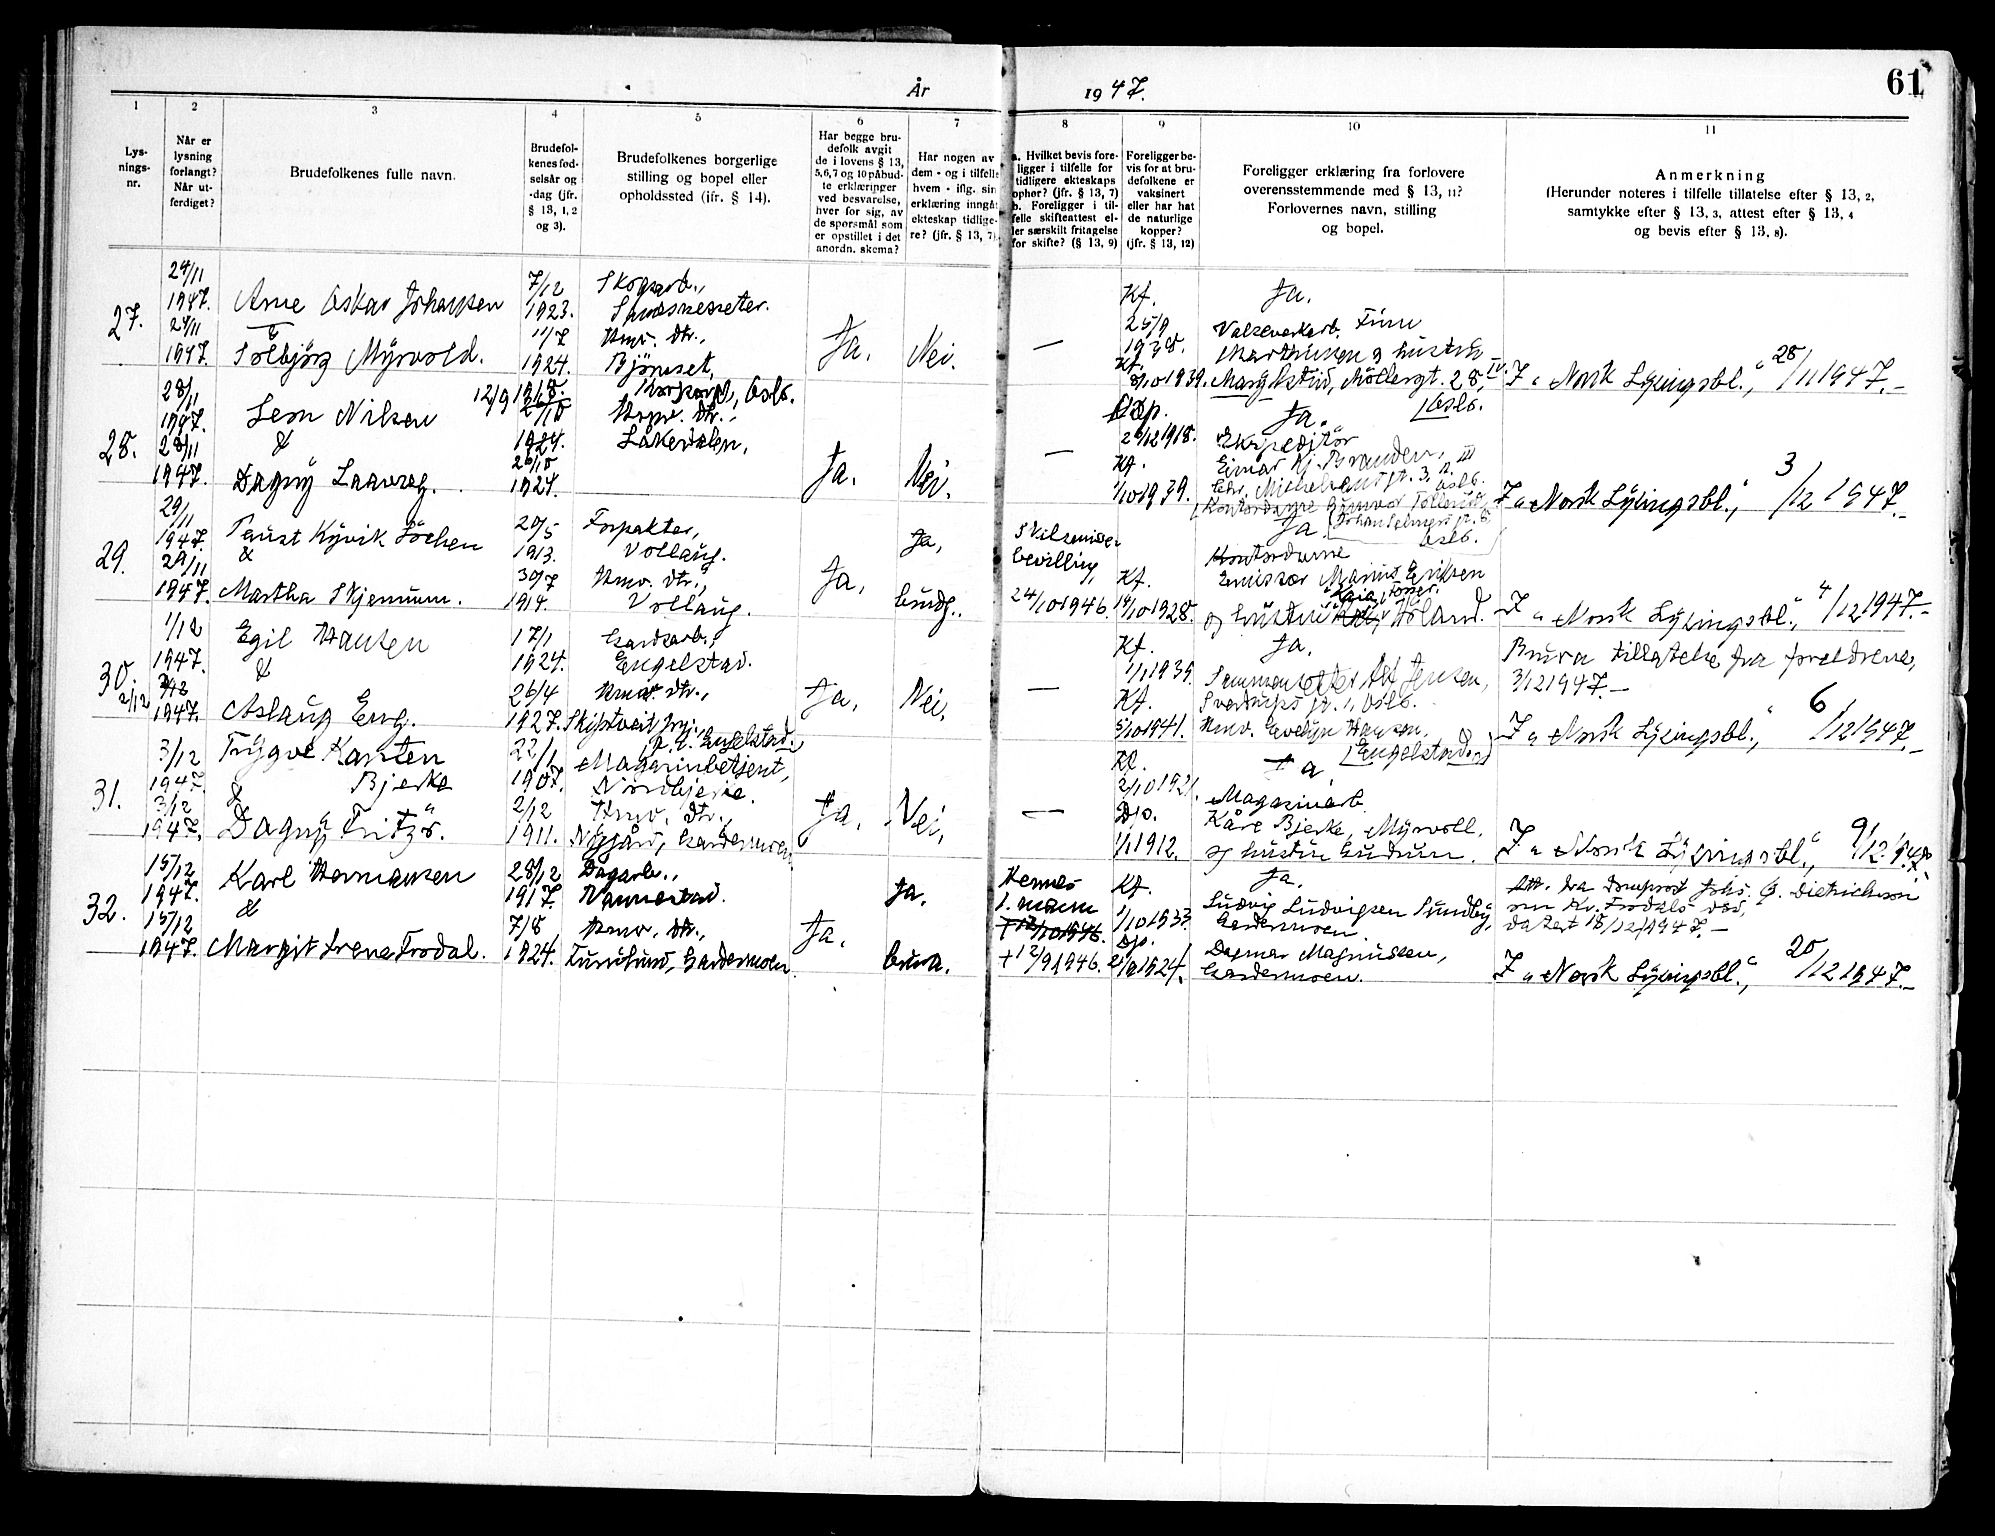 61
År 1947.
1 2 3 4 5 6 7 8 9 10 11
Lys-
nings-
nr.
Når er
lysning
forlangt?
Når ut-
ferdiget?
Brudefolkenes fulle navn.
Brudefol-
kenes fød-
selsår og
-dag (jfr.
§ 13, 1, 2
og 3).
Brudefolkenes borgerlige
stilling og bopel eller
opholdssted (jfr. § 14).
Har begge bru-
defolk avgit
de i lovens § 13,
5,6,7 og 10 påbud-
te erklæringer
ved besvarelse,
hver for sig, av
de spørsmål som
er opstillet i det
anordn. skema?
Har nogen av
dem - og i tilfelle
hvem - iflg. sin
erklæring inngått
ekteskap tidlige-
re? (jfr. § 13, 7).
a. Hvilket bevis fore-
ligger i tilfelle for
tidligere ekteskaps
ophør? (jfr. § 13, 7)
b. Foreligger i til-
felle skifteattest el-
ler særskilt fritagelse
for skifte? (§ 13, 9)
Foreligger be-
vis for at bru-
defolkene er
vaksinert
eller har hat
de naturlige
kopper?
(jfr. § 13, 12)
Foreligger erklæring fra forlovere
overensstemmende med § 13, 11?
Forlovernes navn, stilling
og bopel.
Anmerkning
(Herunder noteres i tilfelle tillatelse efter § 13, 2,
samtykke efter § 13, 3, attest efter § 13, 4
og bevis efter § 13, 8).
27.
24/11
1947.
24/11
1947.
Arne Oskar Johansen
&
Solbjørg Myrvold.
7/12
1923.
11/7
1924.
Skogsarb.,
Hmv. dtr.,
Ja.
Nei.
—
Kf.
25/9
1938.
Kf.
8/10 1939.
Ja.
Valseverkarb. Finn
Marthinsen og hustru
Møllergt. 28, IV.
Oslo.
I „Norsk Lysingsbl.“, 28/11 1947.–
28.
28/11
1947.
28/11
1947.
Nilsen
&
Dagny
12/9 1918.
1924.
26/10
1924.
Oslo.
Hmv. dtr.,
Ja.
Nei.
—
1918.
Kf.
1/10 1939.
Ja.
Ekspeditør
Einar Kj. Branden,
Chr. Michelsens gt. 3, III
Oslo.
I „Norsk Lysingsbl.“, 3/12 1947.–
29.
29/11
1947.
29/11
1947.
&
Martha Skjennum.
20/5
1913.
30/7
1914.
Forpakter,
Vollaug.
Hmv. dtr.,
Vollaug.
Ja.
Ja,
brudg.
Skilsmisse-
bevilling,
24/10 1946.
Kf.
14/10 1928.
Ja.
Oslo.
Emissær Marius Eriksen
og hustru
Høland.
I „Norsk Lysingsbl.“, 4/12 1947.–
30.
2/12
1/12
1947.
2/12
1947.
Egil Hansen
&
Aslaug Eng.
17/1
1924.
26/4
1927.
Gardsarb.,
Engelstad.
Hmv. dtr.,
Skiptveit
Engelstad.
Ja.
Nei.
—
Kf.
1/1 1939.
Kf.
5/10 1941.
Ja.
Alf Jensen,
Sverdrups gt. 1, Oslo.
Hmv. Evelyn Hansen.
(Engelstad.)
Brura tillatelse fra foreldrene,
3/12 1947.–
I „Norsk Lysingsbl.“, 6/12 1947.–
31.
3/12
1947.
3/12
1947.
Trygve Karsten
Bjerke
&
Dagny Fritzø.
22/1
1907.
2/12
1911.
Magasinbetjent,
Hmv. dtr.,
Nygård, Gardermoen.
Ja.
Nei.
—
2/10 1921.
Dp.
1/1 1912.
Ja.
Magasinarb.
Kåre Bjerke, Myrvoll.
og hustru Gudrun.
I „Norsk Lysingsbl.“, 9/12 1947.
32.
15/12
1947.
15/12
1947.
Karl Hermansen
&
Margit Irene Frodal.
28/12
1917.
7/8
1924.
Dagarb.,
Nannestad.
Hmv. dtr.,
Furulund, Gardermoen.
Ja.
Ja.
brura.
Hennes
1. mann
+ 12/9 1946.
Kf.
1/10 1933.
Dp.
Ja.
Ludvig Ludvigsen Sundby,
Gardermoen
Dagmar Magnussen,
Gardermoen.
Att. fra domprost Johs. Ø. Dietrichson
om Kr. Frodals død,
datert 18/12 1947.–
I „Norsk Lysingsbl.“, 20/12 1947.–